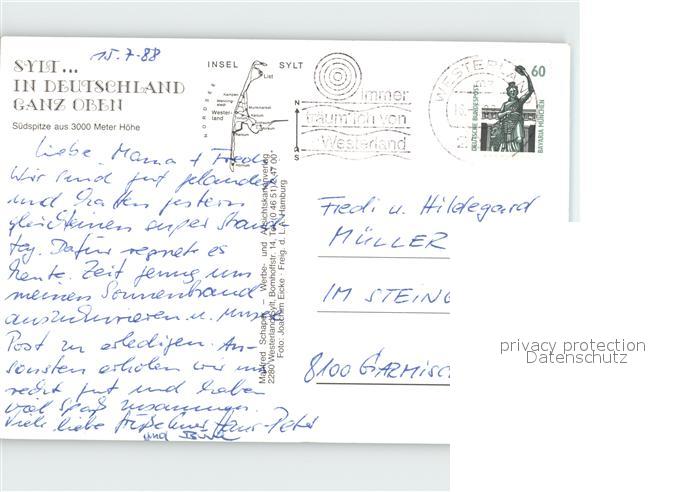 15.7.88
SYLT...
IN DEUTSCHLAND
GANZ OBEN
Südspitze aus 3000 Meter Höhe
INSEL SYLT
NORDSEE
List
Kampen
Wester-
land
Hörnum
N
S
Immer
traumhaft von
Westerland
WESTERLAND
60
DEUTSCHE BUNDESPOST
BAVARIA MÜNCHEN
Liebe Mama + Fredi
Wir sind gut gelandet
und hatten gestern
gleich einen super Strand-
tag. Dafür regnet es
heute. Zeit genug um
meinen Sonnenbrand
auszukurieren u.
Post zu erledigen. An-
sonsten erholen wir uns
recht gut und haben
viel Spaß zusammen.
Viele liebe Hans-Peter
und
Manfred Schaper – Werbe- und Ansichtskartenverlag
2280 Westerland/Sylt, Bomhoffstr. 14, Tel. (0 46 51)
Foto: Joachim Eicke · Freig. d. L.A. Hamburg
Fredi u. Hildegard
MÜLLER
IM STEING
8100 GARMISC
privacy protection
Datenschutz